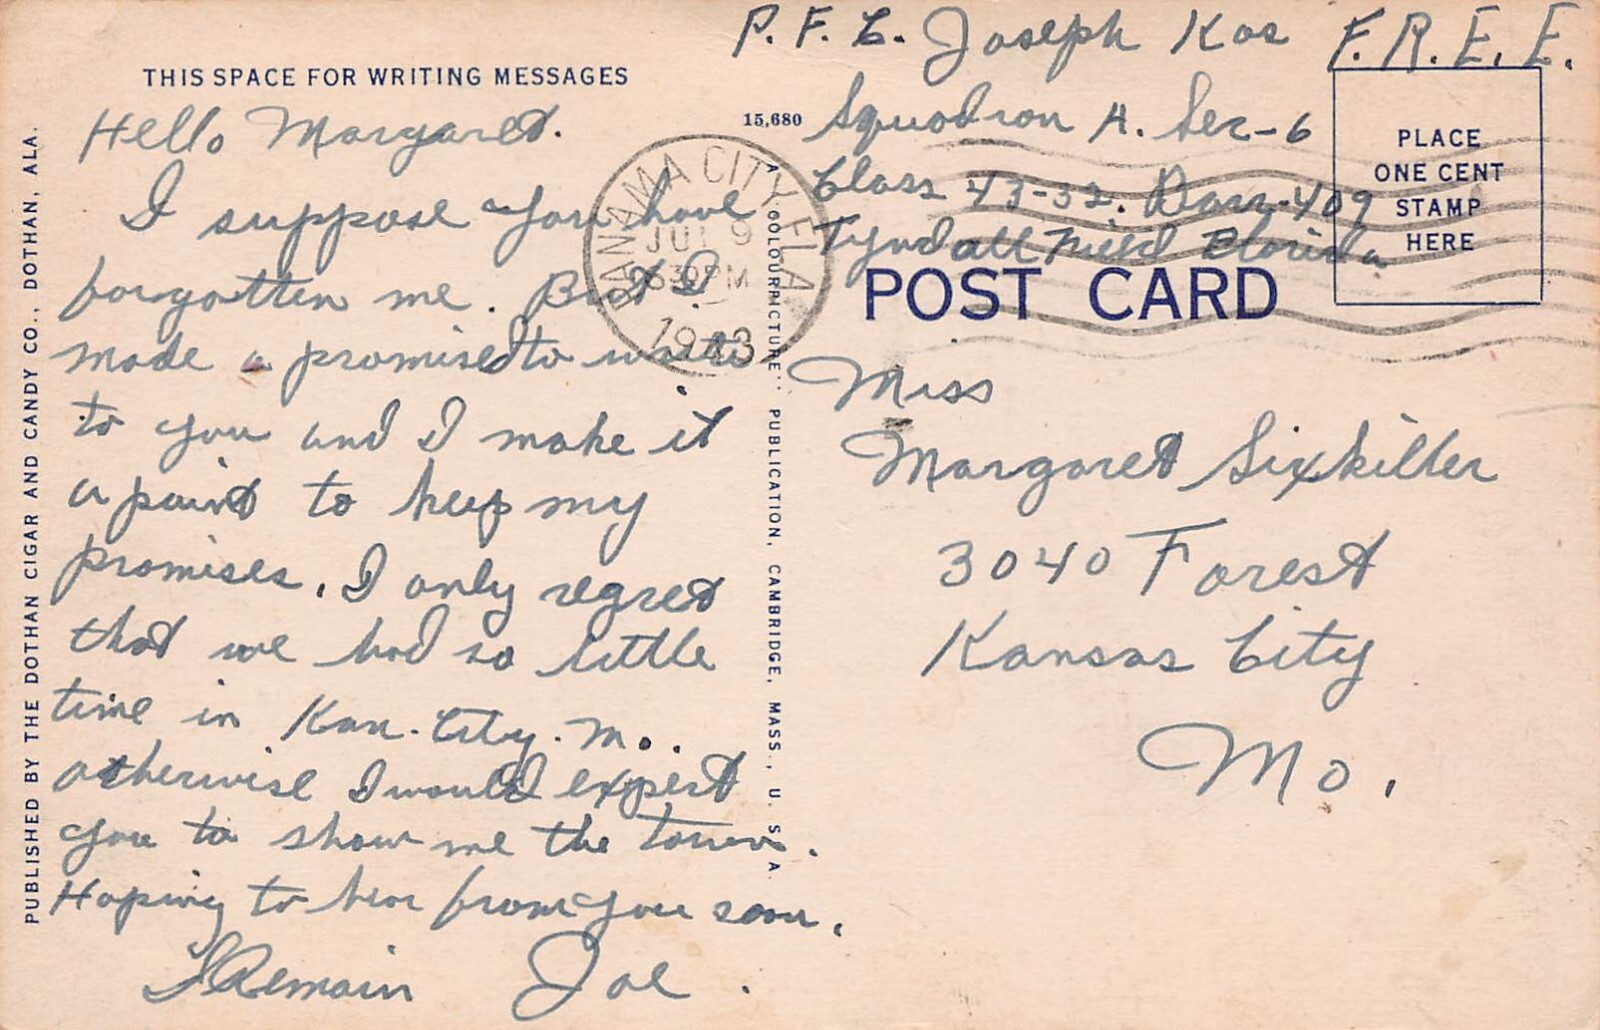 P.F.C. Joseph Kos F.R.E.E.
Squadron A. Sec-6
Class 43-32. Barr-409
Tyndall Field Florida
THIS SPACE FOR WRITING MESSAGES
Hello Margaret.
I suppose you have
forgotten me. But I
made a promised to write
to you and I make it
a point to keep my
promises. I only regret
that we had so little
time in Kan. City. Mo.
otherwise I would expect
you to show me the town.
Hoping to hear from you soon.
I Remain Joe.
15,680
PANAMA CITY FLA.
JUL 9
630PM
1943
PLACE
ONE CENT
STAMP
HERE
POST CARD
Miss
Margaret Sixkiller
3040 Forest
Kansas City
Mo.
PUBLISHED BY THE DOTHAN CIGAR AND CANDY CO., DOTHAN, ALA.
A "COLOURPICTURE" PUBLICATION, CAMBRIDGE, MASS., U. S. A.